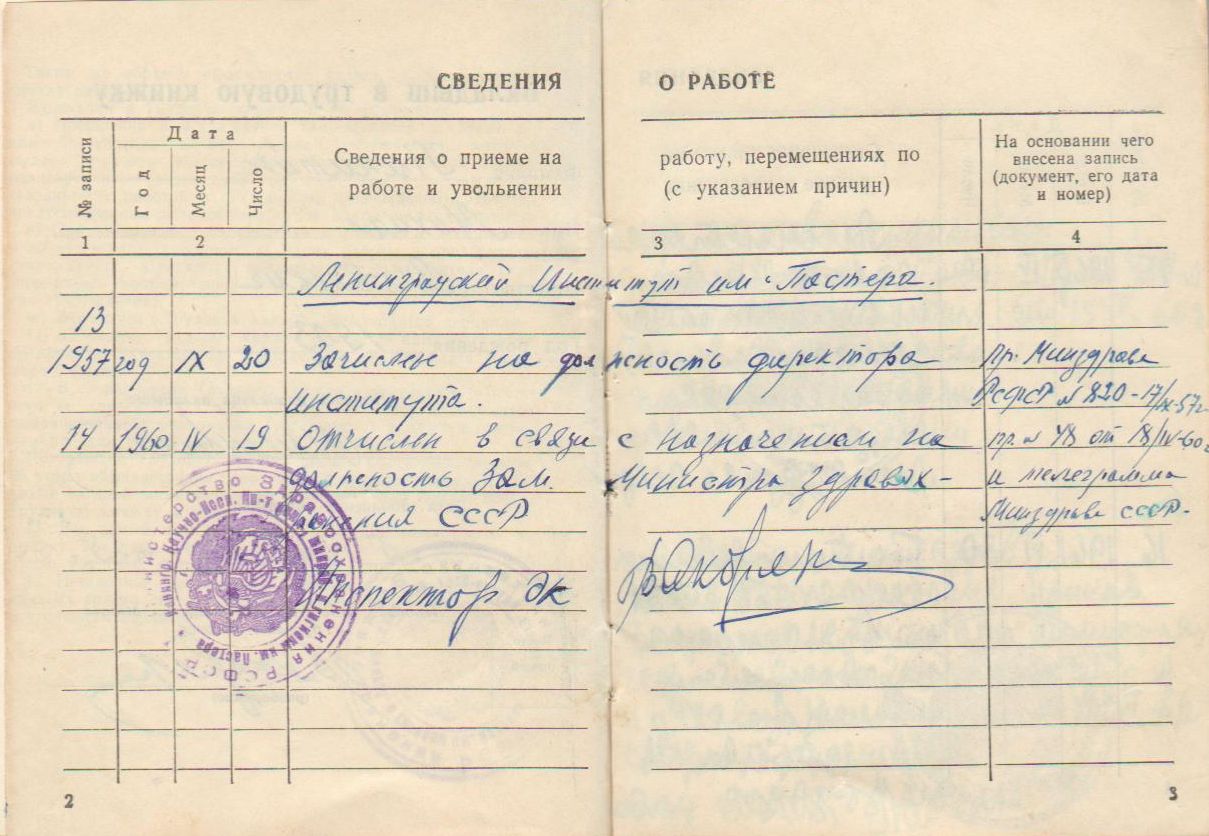 СВЕДЕНИЯ О РАБОТЕ
№ записи
Дата
Год
Месяц
Число
Сведения о приеме на работу, перемещениях по
работе и увольнении (с указанием причин)
На основании чего
внесена запись
(документ, его дата
и номер)
1 2 3 4
Ленинградский Институт им. Пастера.
13
1957 год IX 20 Зачислен на должность директора Пр. Минздрава
института. РСФСР № 820-17/IX-57г
14 1960 IV 19 Отчислен в связи с назначением на пр. № 48 от 18/IV-60г
должность Зам. Министра Здравох- и телеграмма
ранения СССР Минздрава СССР.
Инспектор ОК
Министерство Здравоохранения РСФСР
Ленингр. Научно-Иссл. Ин-т им. Пастера
2
3